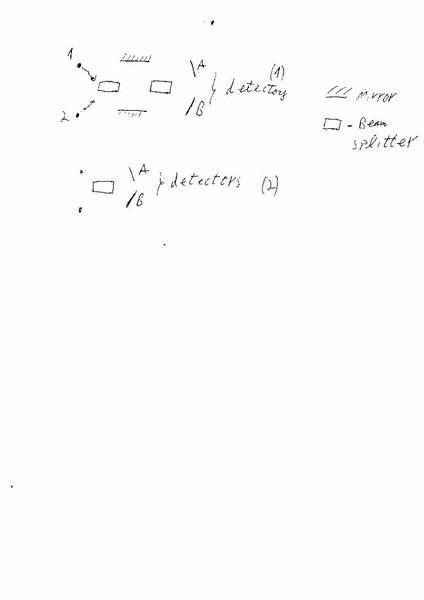 1
2
A
B
} detectors (1)
Mirror
- Beam
splitter
A
B
} detectors (2)